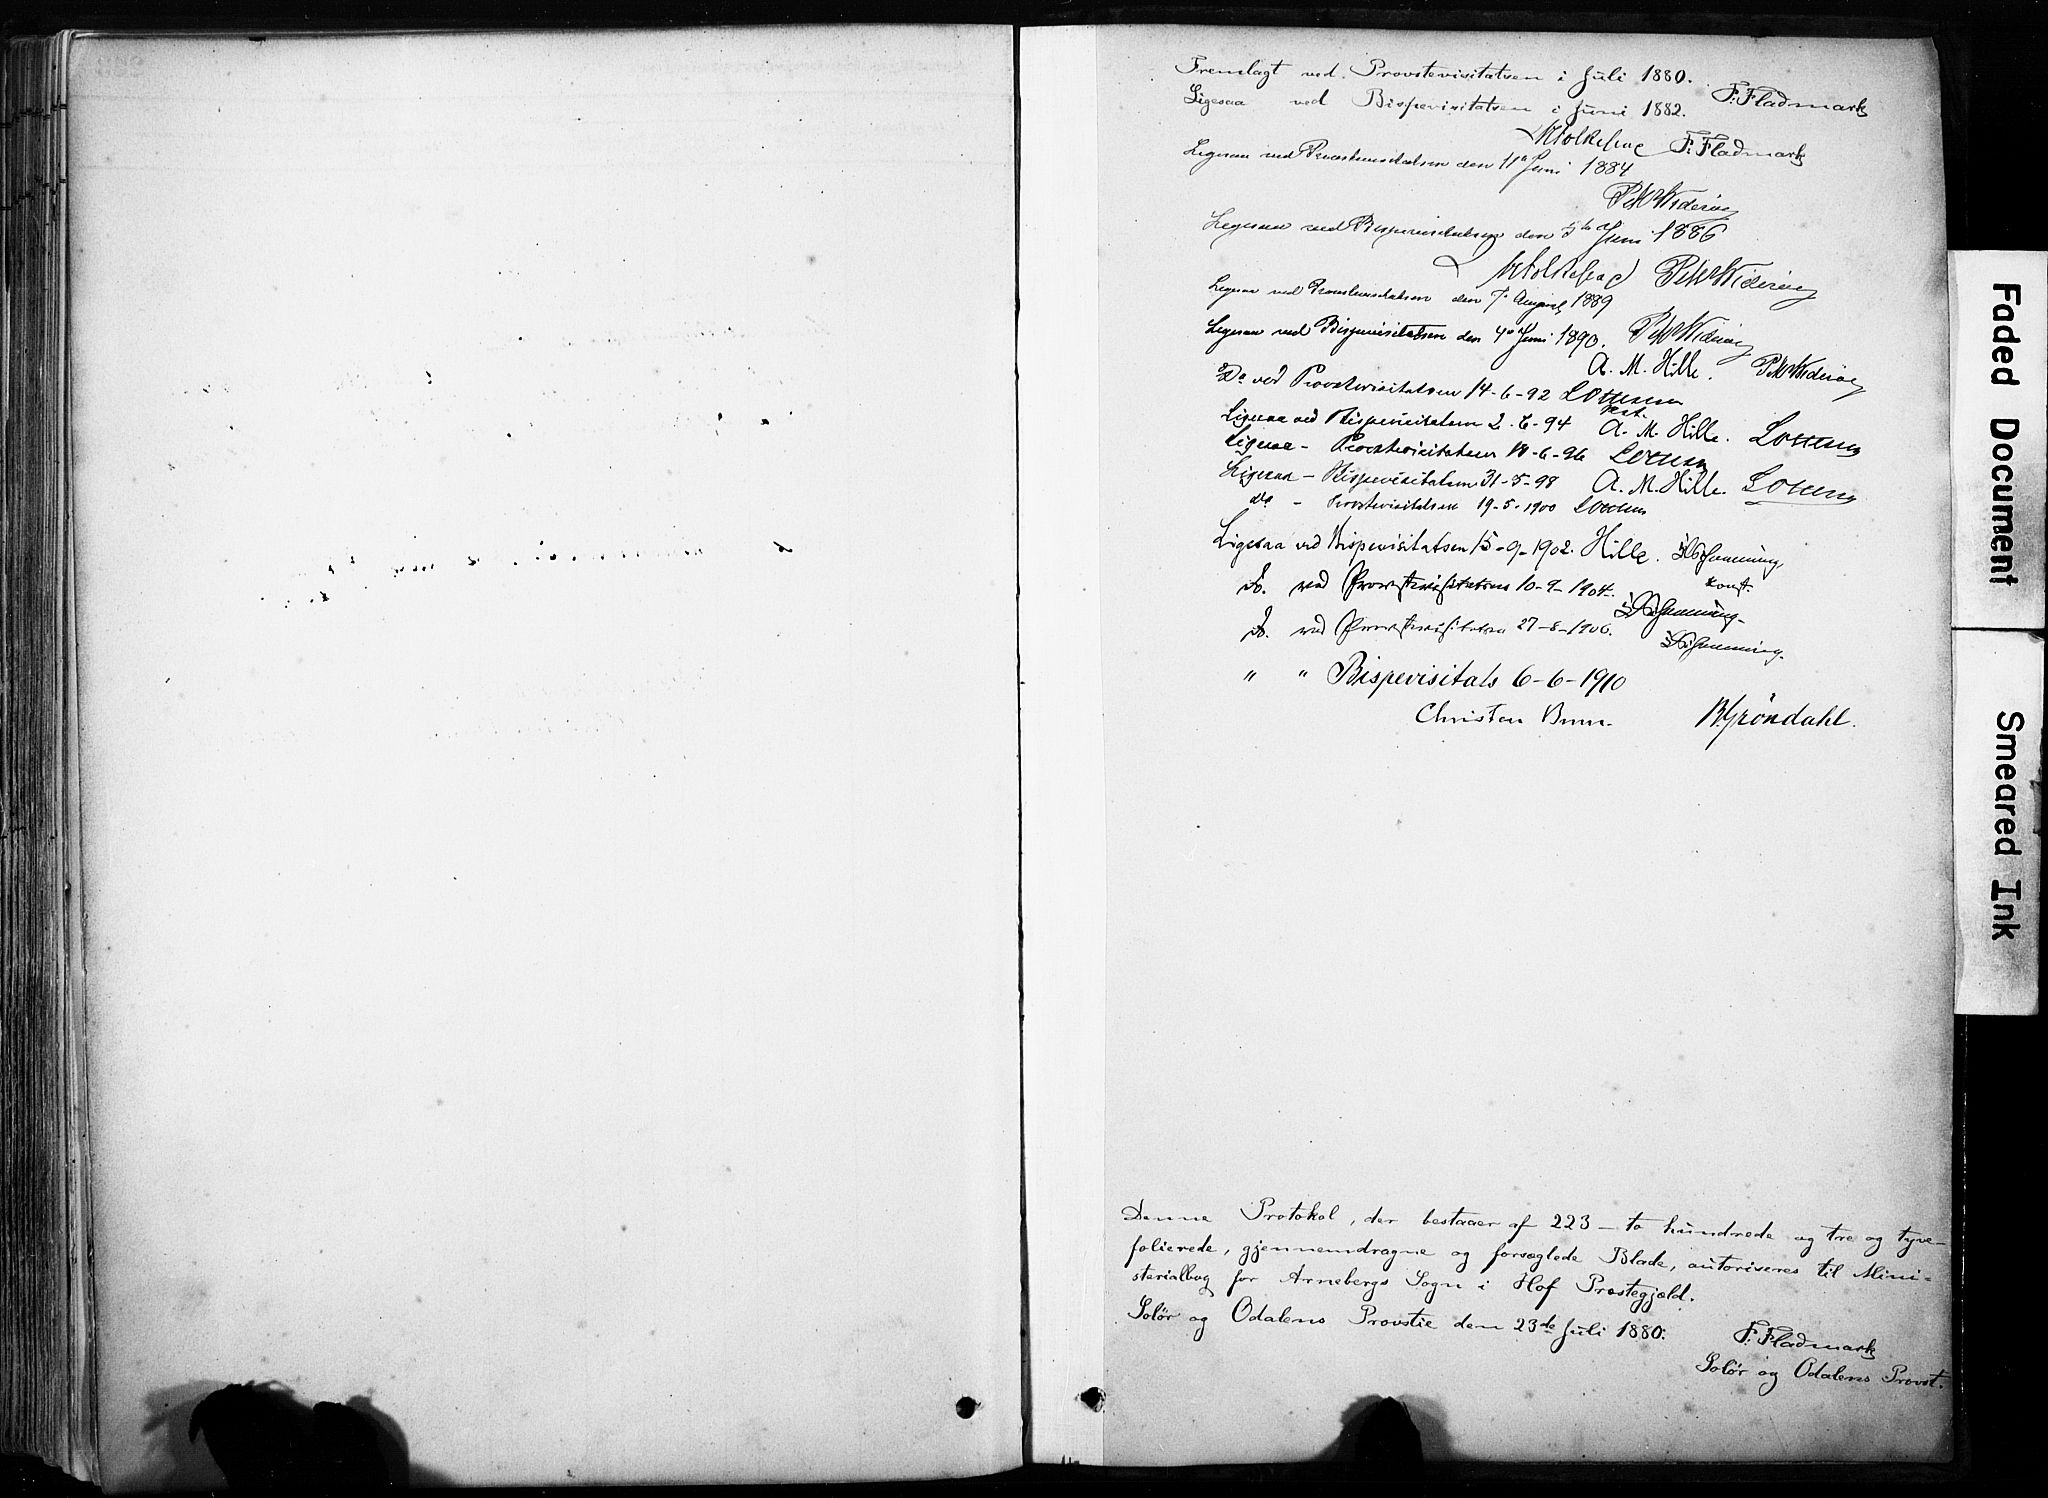 Fremlagt ved Provstevisitatsen i Juli 1880. F. Fladmark
Ligesaa ved Bispevisitatsen i Juni 1882.
F. Fladmark
Ligesaa ved Provstevisitatsen den 11te Juni 1884
Ligesaa ved Bispevisitatsen den 5te Juni 1886
Ligesaa ved Provstevisitatsen den 7de August 1889
Ligesaa ved Bispevisitatsen den 4de Juni 1890.
A. M. Hille.
Do ved Provstevisitatsen 14-6-92
Ligesaa ved Bispevisitatsen 2.6-94 A. M. Hille.
Ligesaa - Provstevisitatsen 18-6-96
Ligesaa - Bispevisitatsen 31-5-98 A. M. Hille.
do - Provstevisitatsen 19-5-1900
Ligesaa ved Bispevisitatsen 15-9-1902. Hille.
konst.
do. ved Provstevisitatsen 10-9-1904.
do. ved Provstevisitatsen 27-8-1906.
" " Bispevisitats 6-6-1910
Christen Brun. B. Gröndahl.
Denne Protokol, der bestaaer af 223 - to hundrede og tre og tyve-
folierede, gjennemdragne og forseglede Blade, autoriseres til Mini-
sterialbog for Arnebergs Sogn i Hof Præstegjæld.
Solør og Odalens Provstie den 23de Juli 1880.
F. Fladmark
Solør og Odalens Provst.
Faded Document
Smeared Ink